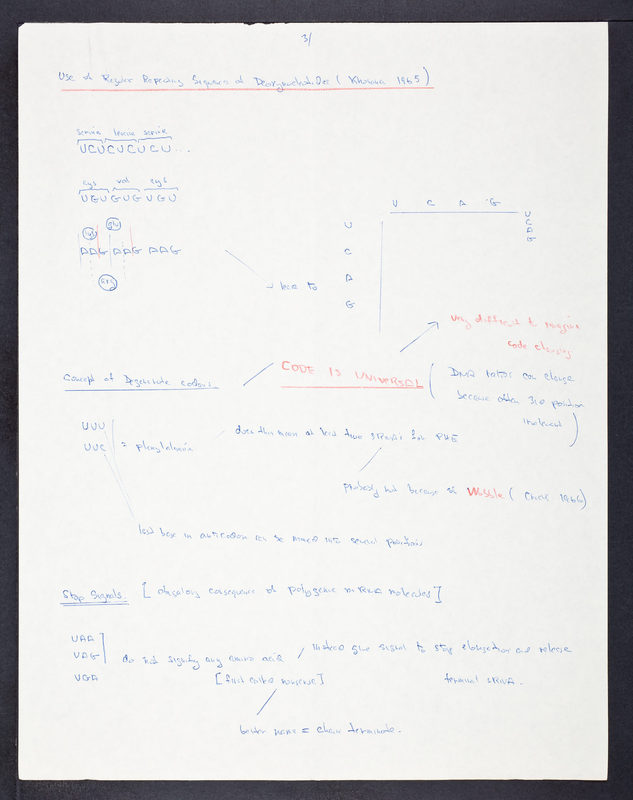 3/
Use of Regular Repeating Sequences of (Khorana 1965)
serine leucine serine
UCUCUCUCU...
cys val cys
UGUGUGUGU
lys glu
AAGAAGAAG
arg
U C A G
U
C
A
G
U
C
A
G
→ lead to
very difficult to imagine
code changing
Concept of Degenerate codons.
CODE IS UNIVERSAL
(DNA ratios can change
because often 3rd position
irrelevant)
UUU
UUC
= phenylalanine
does this mean at least two for PHE
probably not because of Wobble (Crick 1966)
last base in anticodon can be into several positions
Stop Signals. [obligatory consequence of polygenic mRNA molecules]
UAA
UAG
UGA
do not signify any amino acid / instead give signal to stop elongation and release
[first called nonsense] terminal tRNA.
better name = chain terminate.